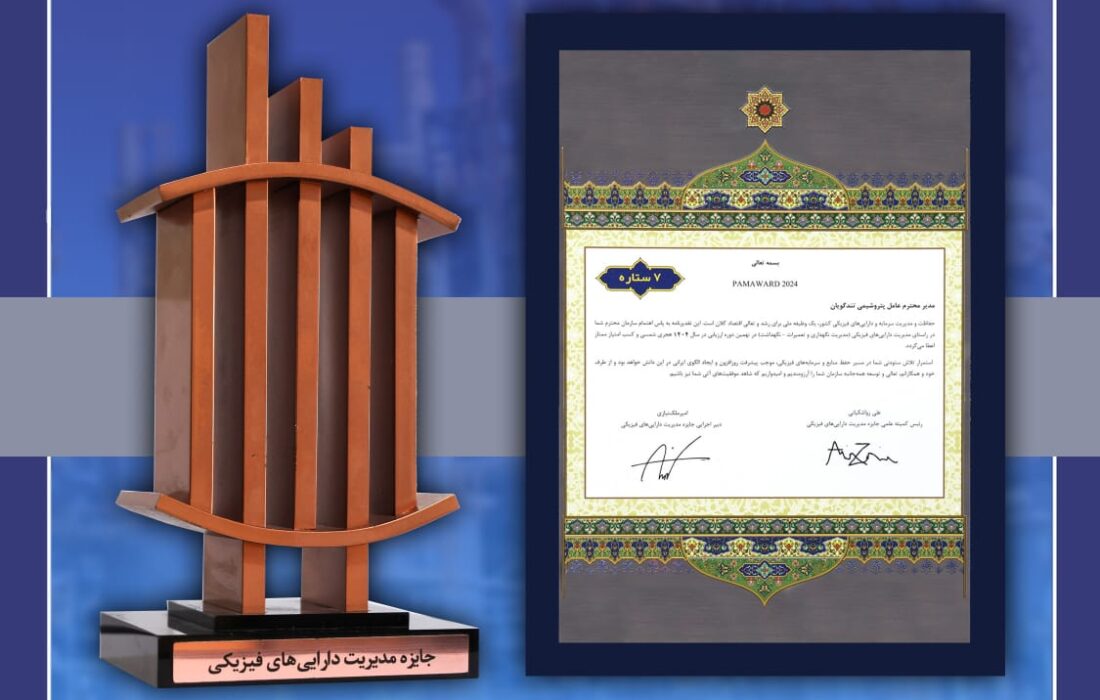 بسمه تعالی
۷ ستاره
PAMAWARD 2024
مدیر محترم عامل پتروشیمی تندگویان
حفاظت و مدیریت سرمایه و دارایی‌های فیزیکی کشور، یک وظیفه ملی برای رشد و تعالی اقتصاد کلان است. این تقدیرنامه به پاس اهتمام سازمان محترم شما
در راستای مدیریت دارایی‌های فیزیکی (مدیریت نگهداری و تعمیرات - نگهداشت) در نهمین دوره ارزیابی در سال ۱۴۰۴ هجری شمسی و کسب امتیاز ممتاز
اعطا می‌گردد.
استمرار تلاش ستودنی شما در مسیر حفظ منابع و سرمایه‌های فیزیکی، موجب پیشرفت روزافزون و ایجاد الگوی ایرانی در این دانش خواهد بود و از طرف
خود و همکارانم، تعالی و توسعه همه‌جانبه سازمان شما را آرزومندیم و امیدواریم که شاهد موفقیت‌های آتی شما نیز باشیم.
علی زواشکیانی
رئیس کمیته علمی جایزه مدیریت دارایی‌های فیزیکی
دبیر اجرایی جایزه مدیریت دارایی‌های فیزیکی
جایزه مدیریت دارایی‌های فیزیکی